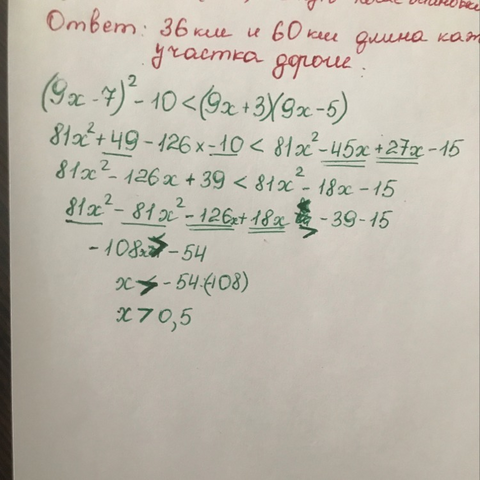 Ответ: 36 км и 60 км длина
участка дороги.
(9x - 7)² - 10 < (9x + 3)(9x - 5)
81x² + 49 - 126x - 10 < 81x² - 45x + 27x - 15
81x² - 126x + 39 < 81x² - 18x - 15
81x² - 81x² - 126x + 18x > - 39 - 15
- 108x > - 54
x > - 54:(-108)
x > 0,5